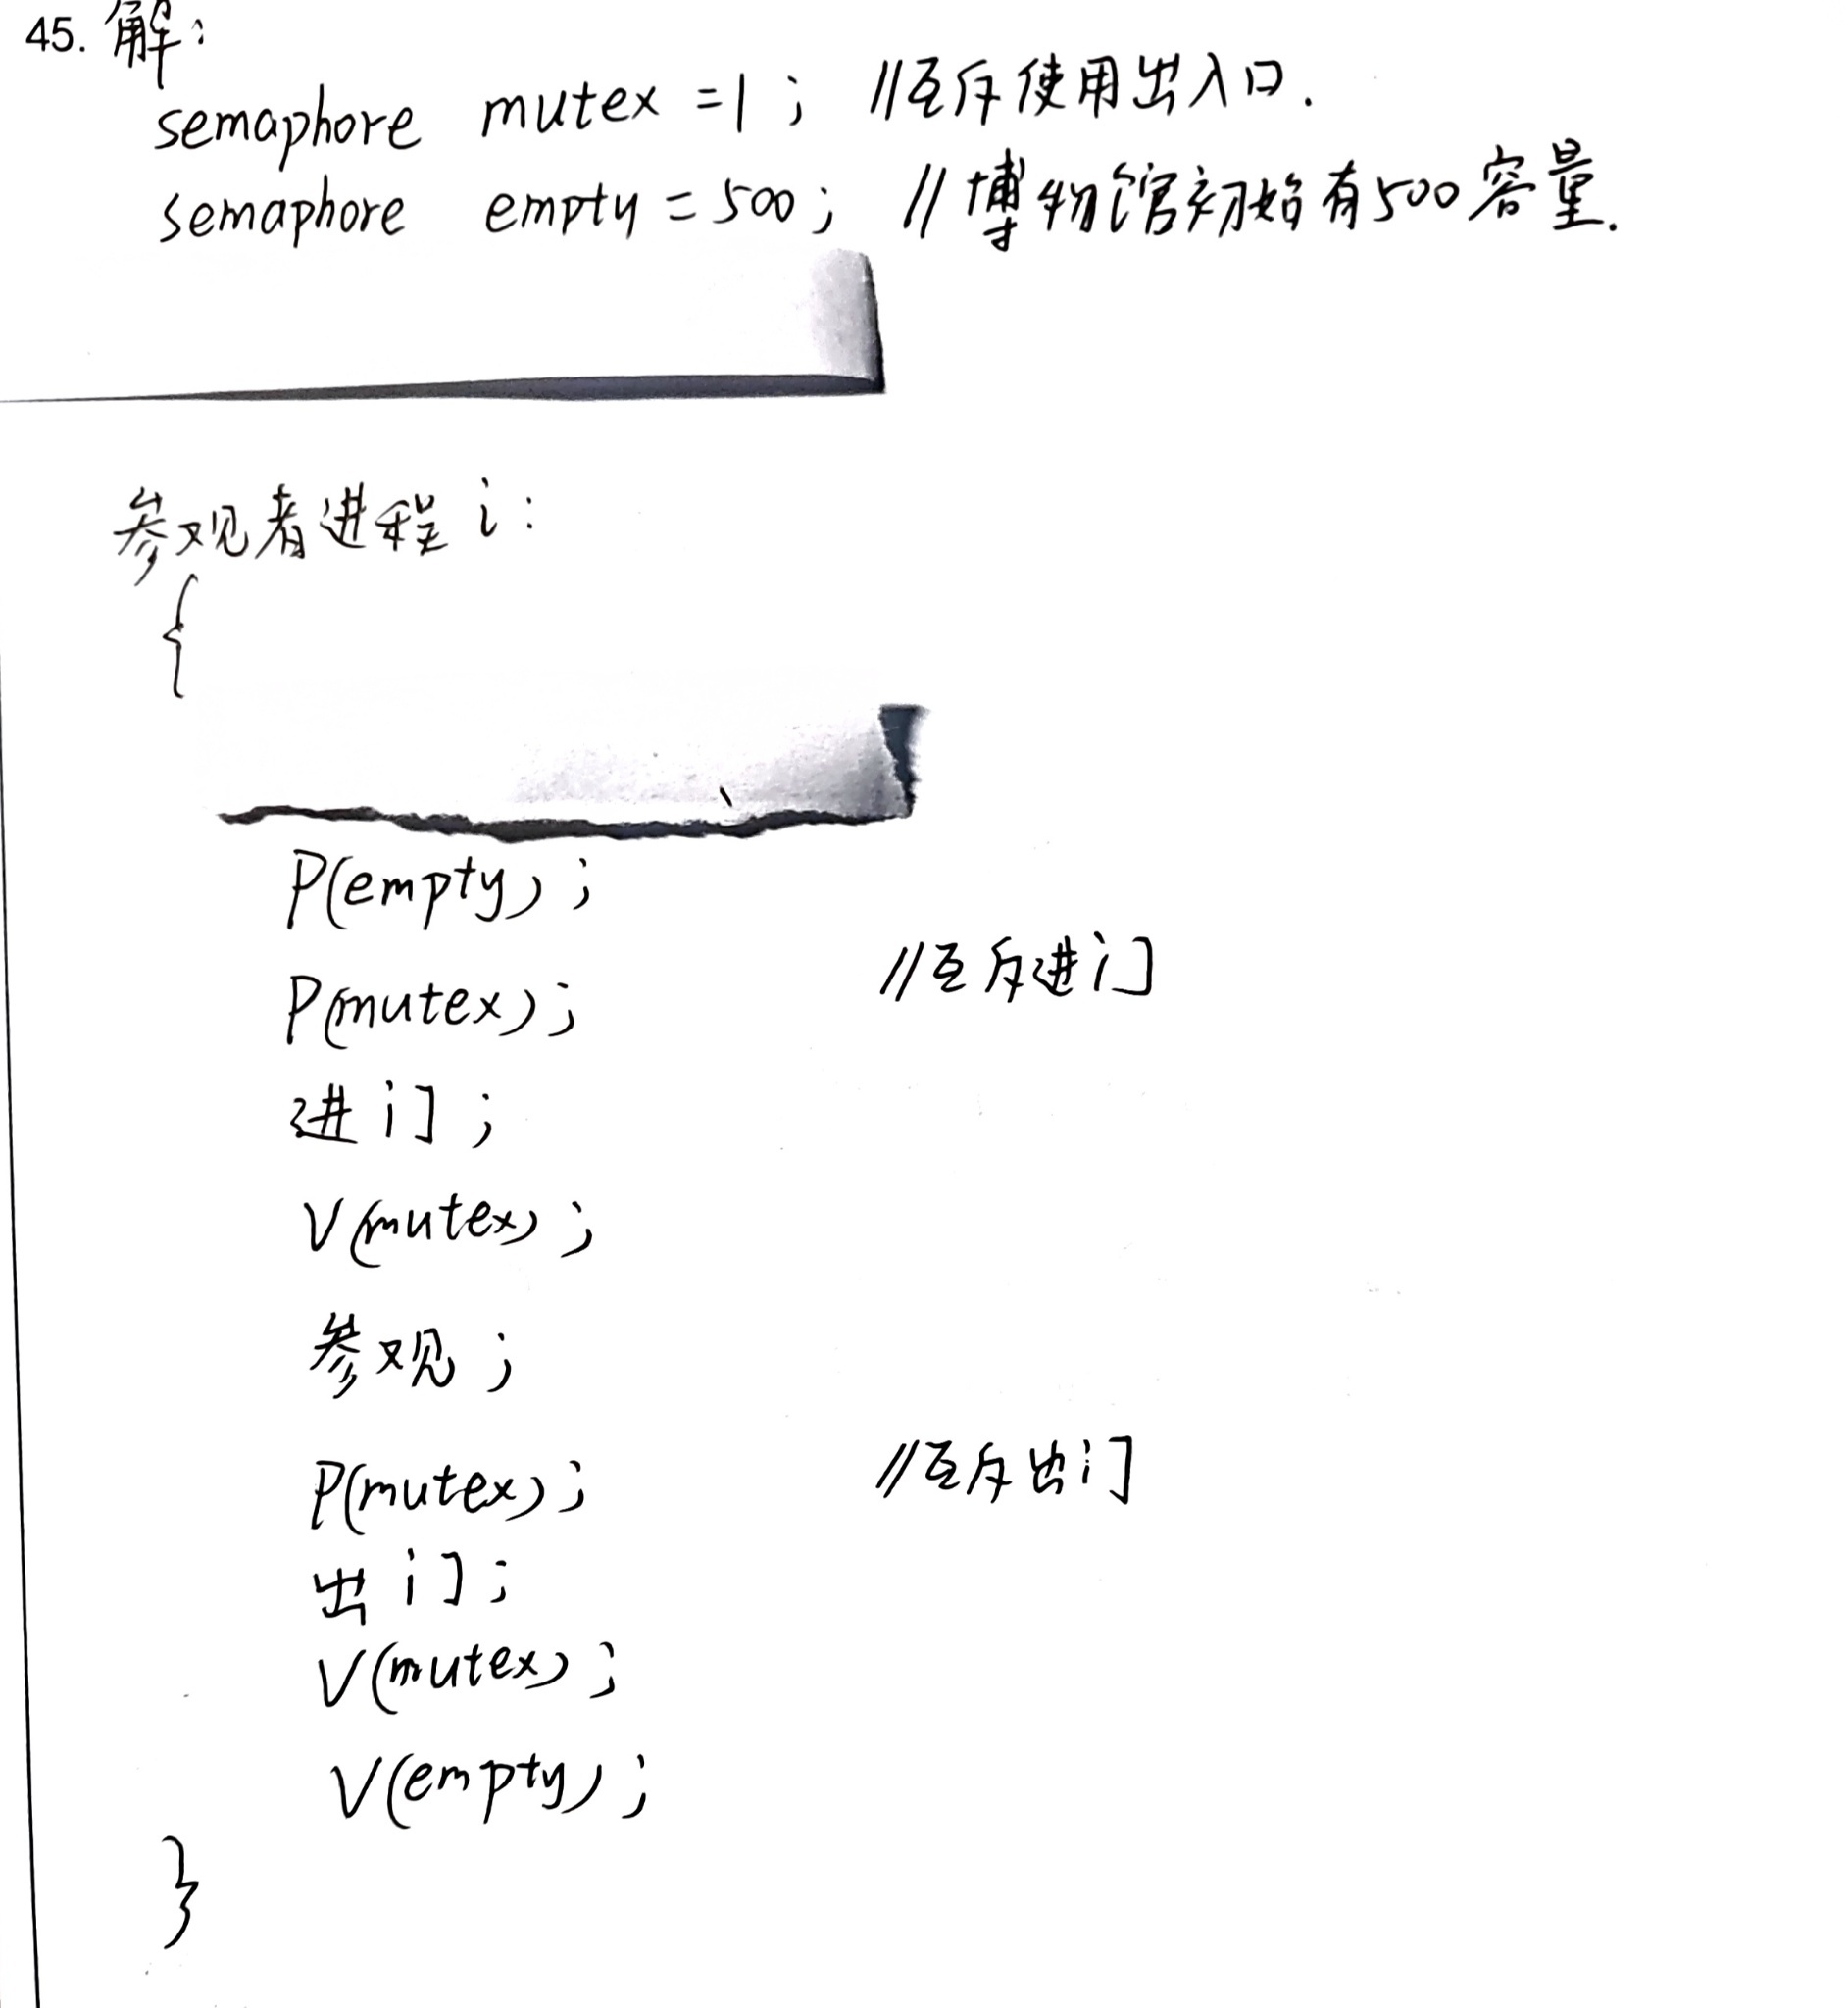 45. 解：
semaphore mutex = 1 ; //互斥使用出入口.
semaphore empty = 500 ; //博物馆初始有500容量.
参观者进程 i :
{
P(empty) ;
P(mutex) ; //互斥进门
进门 ;
V(mutex) ;
参观 ;
P(mutex) ; //互斥出门
出门 ;
V(mutex) ;
V(empty) ;
}